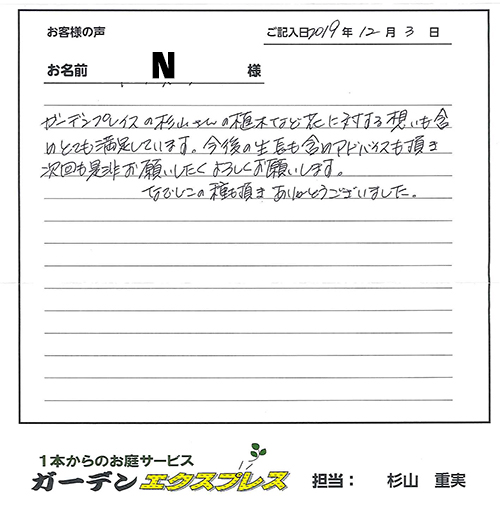 お客様の声
ご記入日2019年12月3日
お名前 N 様
ガーデンプレイスの杉山さんの植木など花に対する想いも含
めとても満足しています。今後の生長も含めアドバイスも頂き
次回も是非お願いしたくよろしくお願いします。
なでしこの種も頂きありがとうございました。
1本からのお庭サービス
ガーデンエクスプレス 担当： 杉山 重実